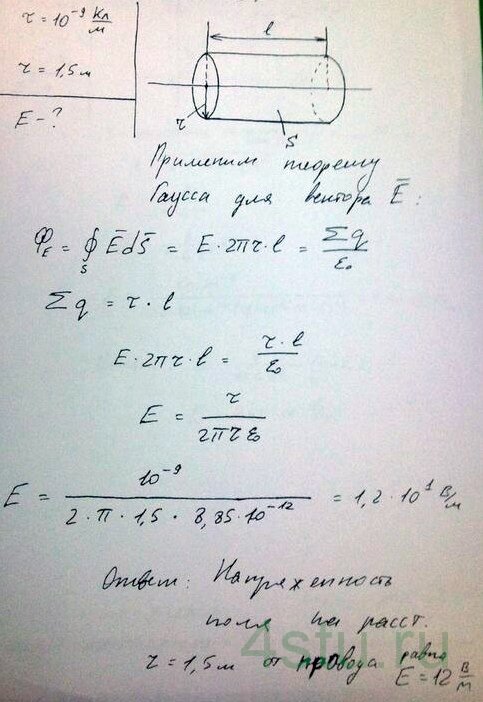 τ = 10⁻⁹ Кл/м
r = 1,5 м
E - ?
l
r
S
Применим теорему
Гаусса для вектора E̅ :
Φ_E = ∮_S E̅ dS̅ = E · 2πr · l = Σq/ε₀
Σq = τ · l
E · 2πr · l = τ · l/ε₀
E = τ/2πrε₀
E = 10⁻⁹/2 · π · 1,5 · 8,85 · 10⁻¹² = 1,2 · 10¹ В/м
Ответ: Напряженность
поля на расст.
r = 1,5 м от провода равна E = 12 В/м
4stu.ru